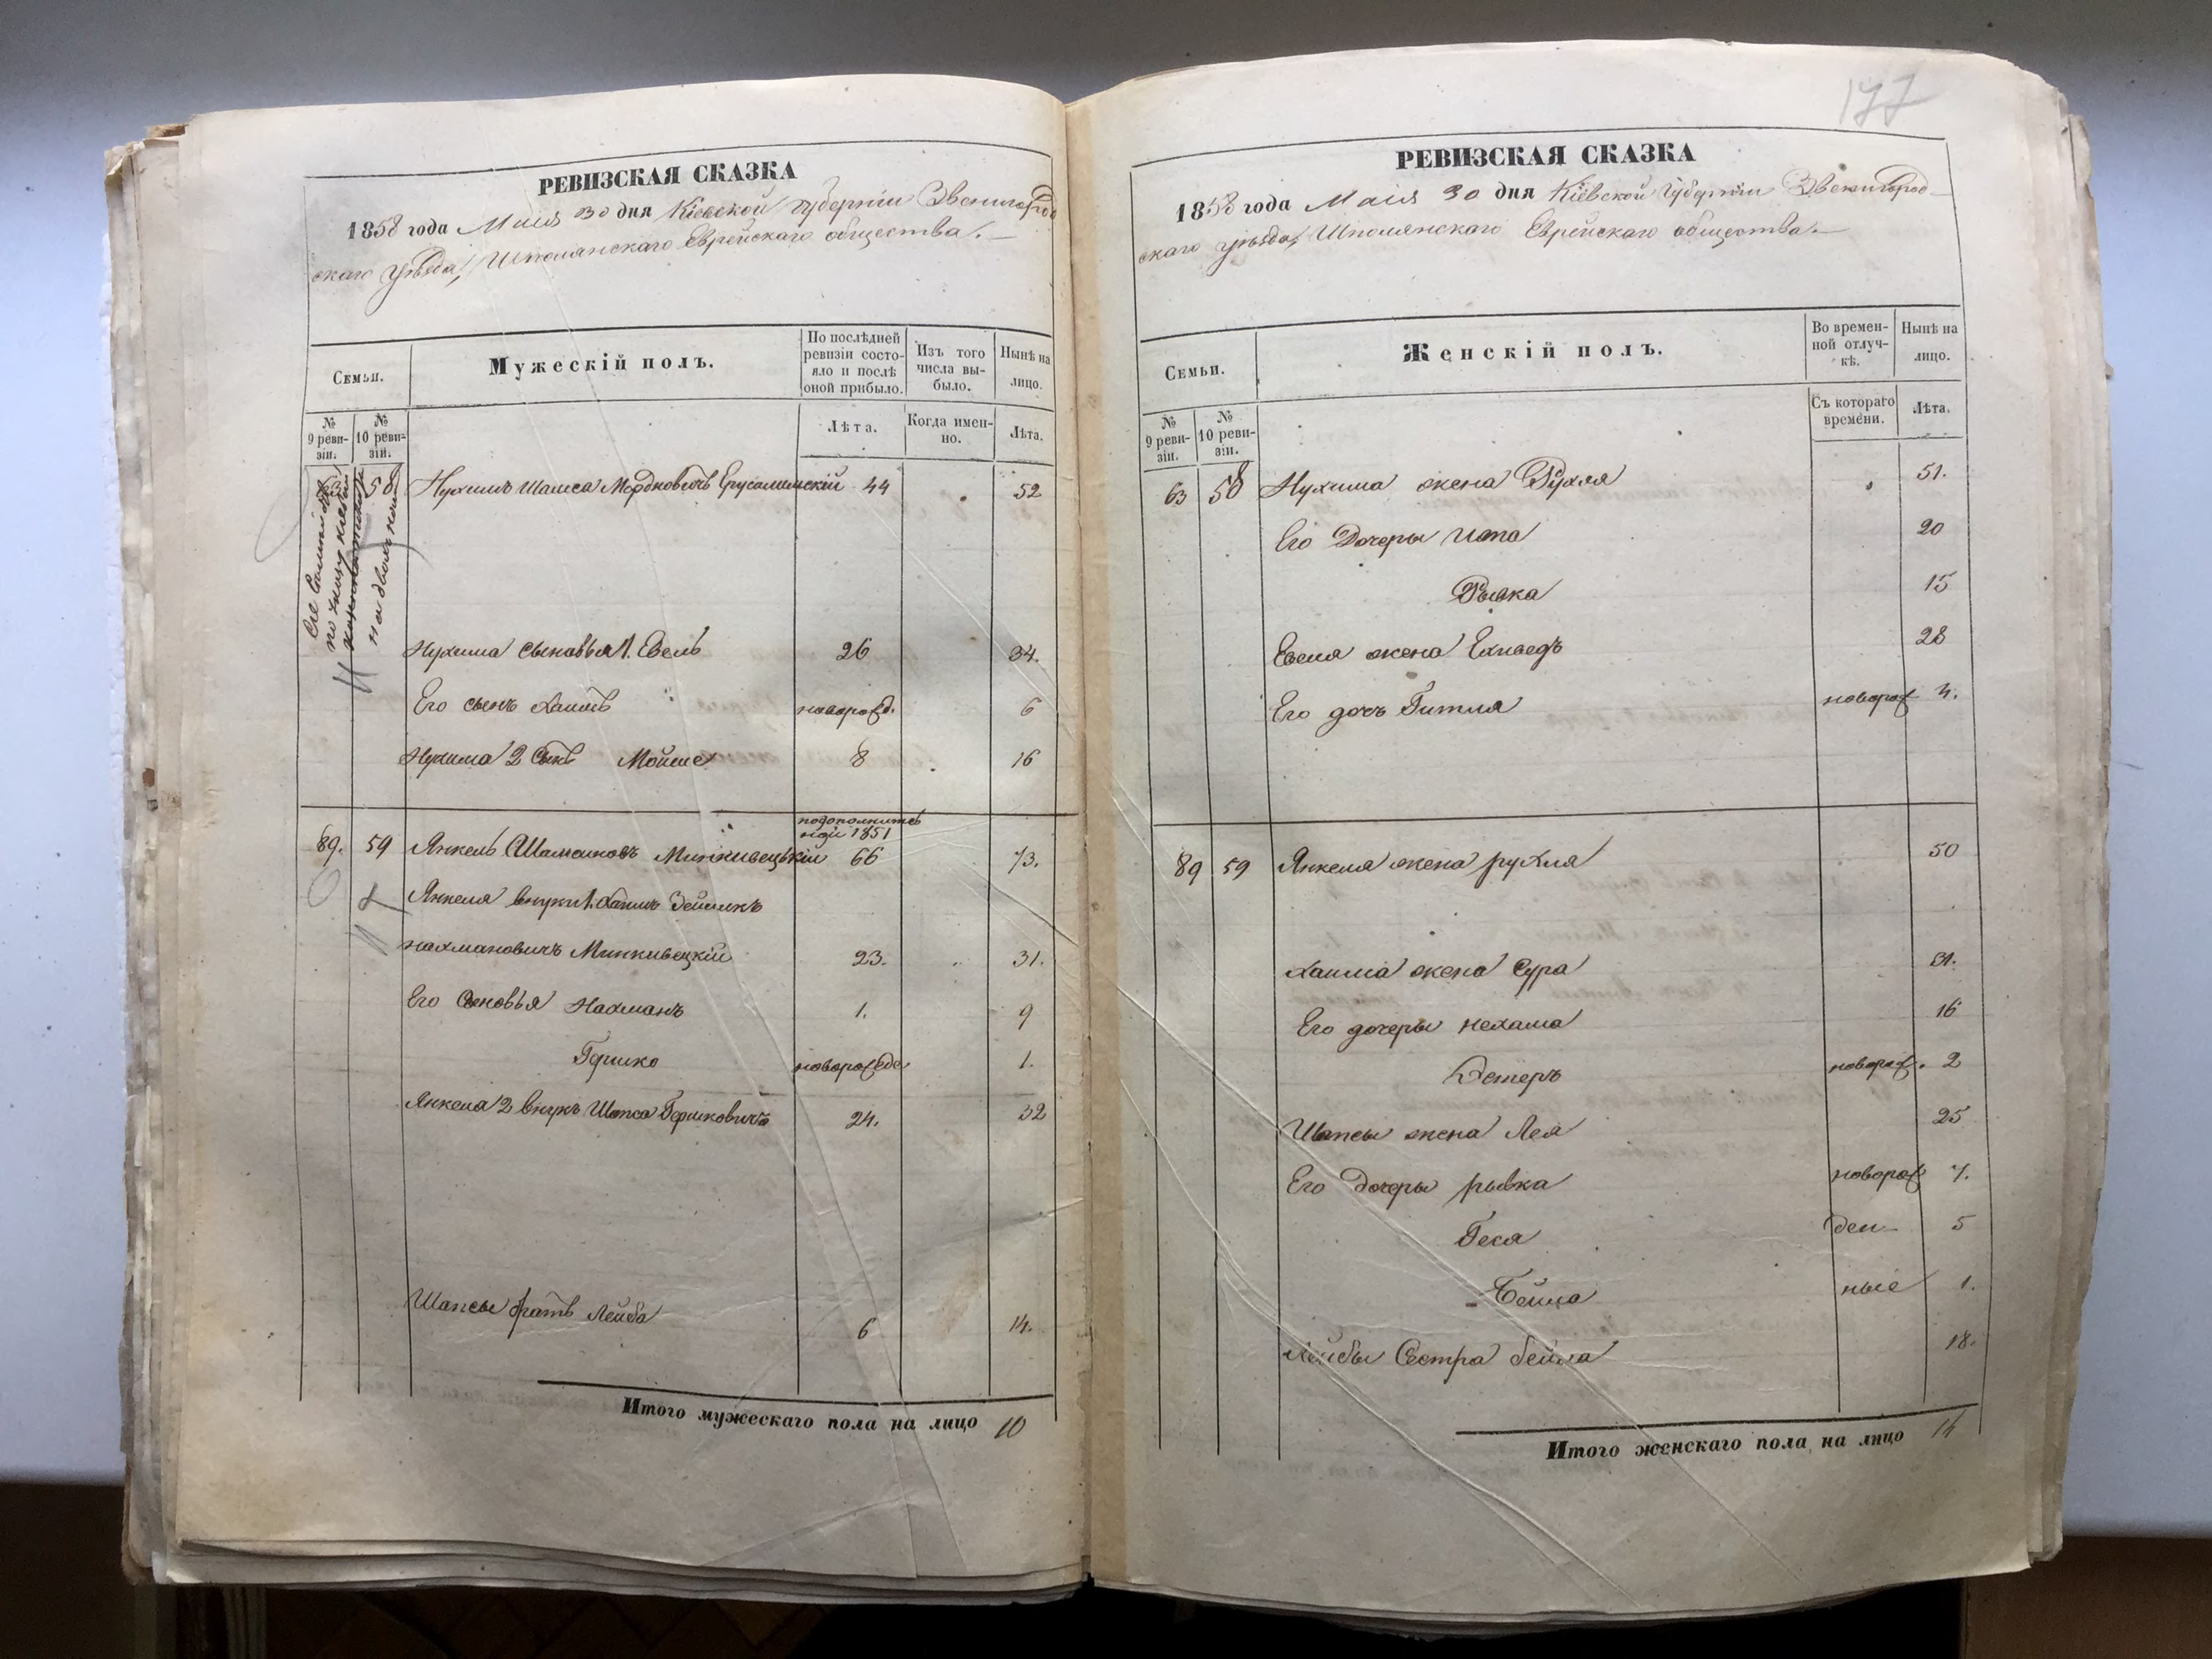 РЕВИЗСКАЯ СКАЗКА
1858 года Маія 30 дня Кіевской губерніи Звенигород
скаго уѣзда, Шполянскаго Еврейскаго общества.
Семьи.
Мужескій полъ.
По послѣдней ревизіи состояло и послѣ оной прибыло.
Изъ того числа выбыло.
Нынѣ на лицо.
№ 9 ревизіи.
№ 10 ревизіи.
Лѣта.
Когда именно.
Лѣта.
58 Нухимъ Шамса Мордковичъ Ерусалимскій 44 52
Нухима сыновья 1. Евель 26 34.
Его сынъ Хаимъ новорожд. 6
Нухима 2 сынъ Мойше 8 16
подополнитель
ной 1851
89. 59 Янкель Шамсиновъ Минкивецькій 66 73.
Янкеля внуки 1. Хаимъ Зейликъ
Нахмановичъ Минкивецкій 23. 31.
Его сыновья Нахманъ 1. 9
Гершко новорожде 1.
Янкеля 2 внукъ Шапса Гершковичъ 24. 32
Шапсы братъ Лейба 6 14.
Итого мужескаго пола на лицо 10
177
РЕВИЗСКАЯ СКАЗКА
1858 года Маія 30 дня Кіевской Губерніи Звенигород-
скаго уѣзда, Шполянскаго Еврейскаго общества.
Семьи.
Женскій полъ.
Во временной отлучкѣ.
Нынѣ на лицо.
№ 9 ревизіи.
№ 10 ревизіи.
Съ котораго времени.
Лѣта.
63 58 Нухима жена Рухля 51.
Его Дочеры Ципа 20
Рывка 15
Евеля жена Ехеведъ 28
Его дочъ Гитля новорож 4.
89 59 Янкеля жена рухля 50
Хаима жена Сура 31.
Его дочеры нехама 16
Эстеръ новорож. 2
Шапсы жена Лея 25
Его Дочеры рывка новорож 7.
Геся ден- 5
Бейла ные 1.
Лейбы Сестра бейла 18.
Итого женскаго пола на лицо 14